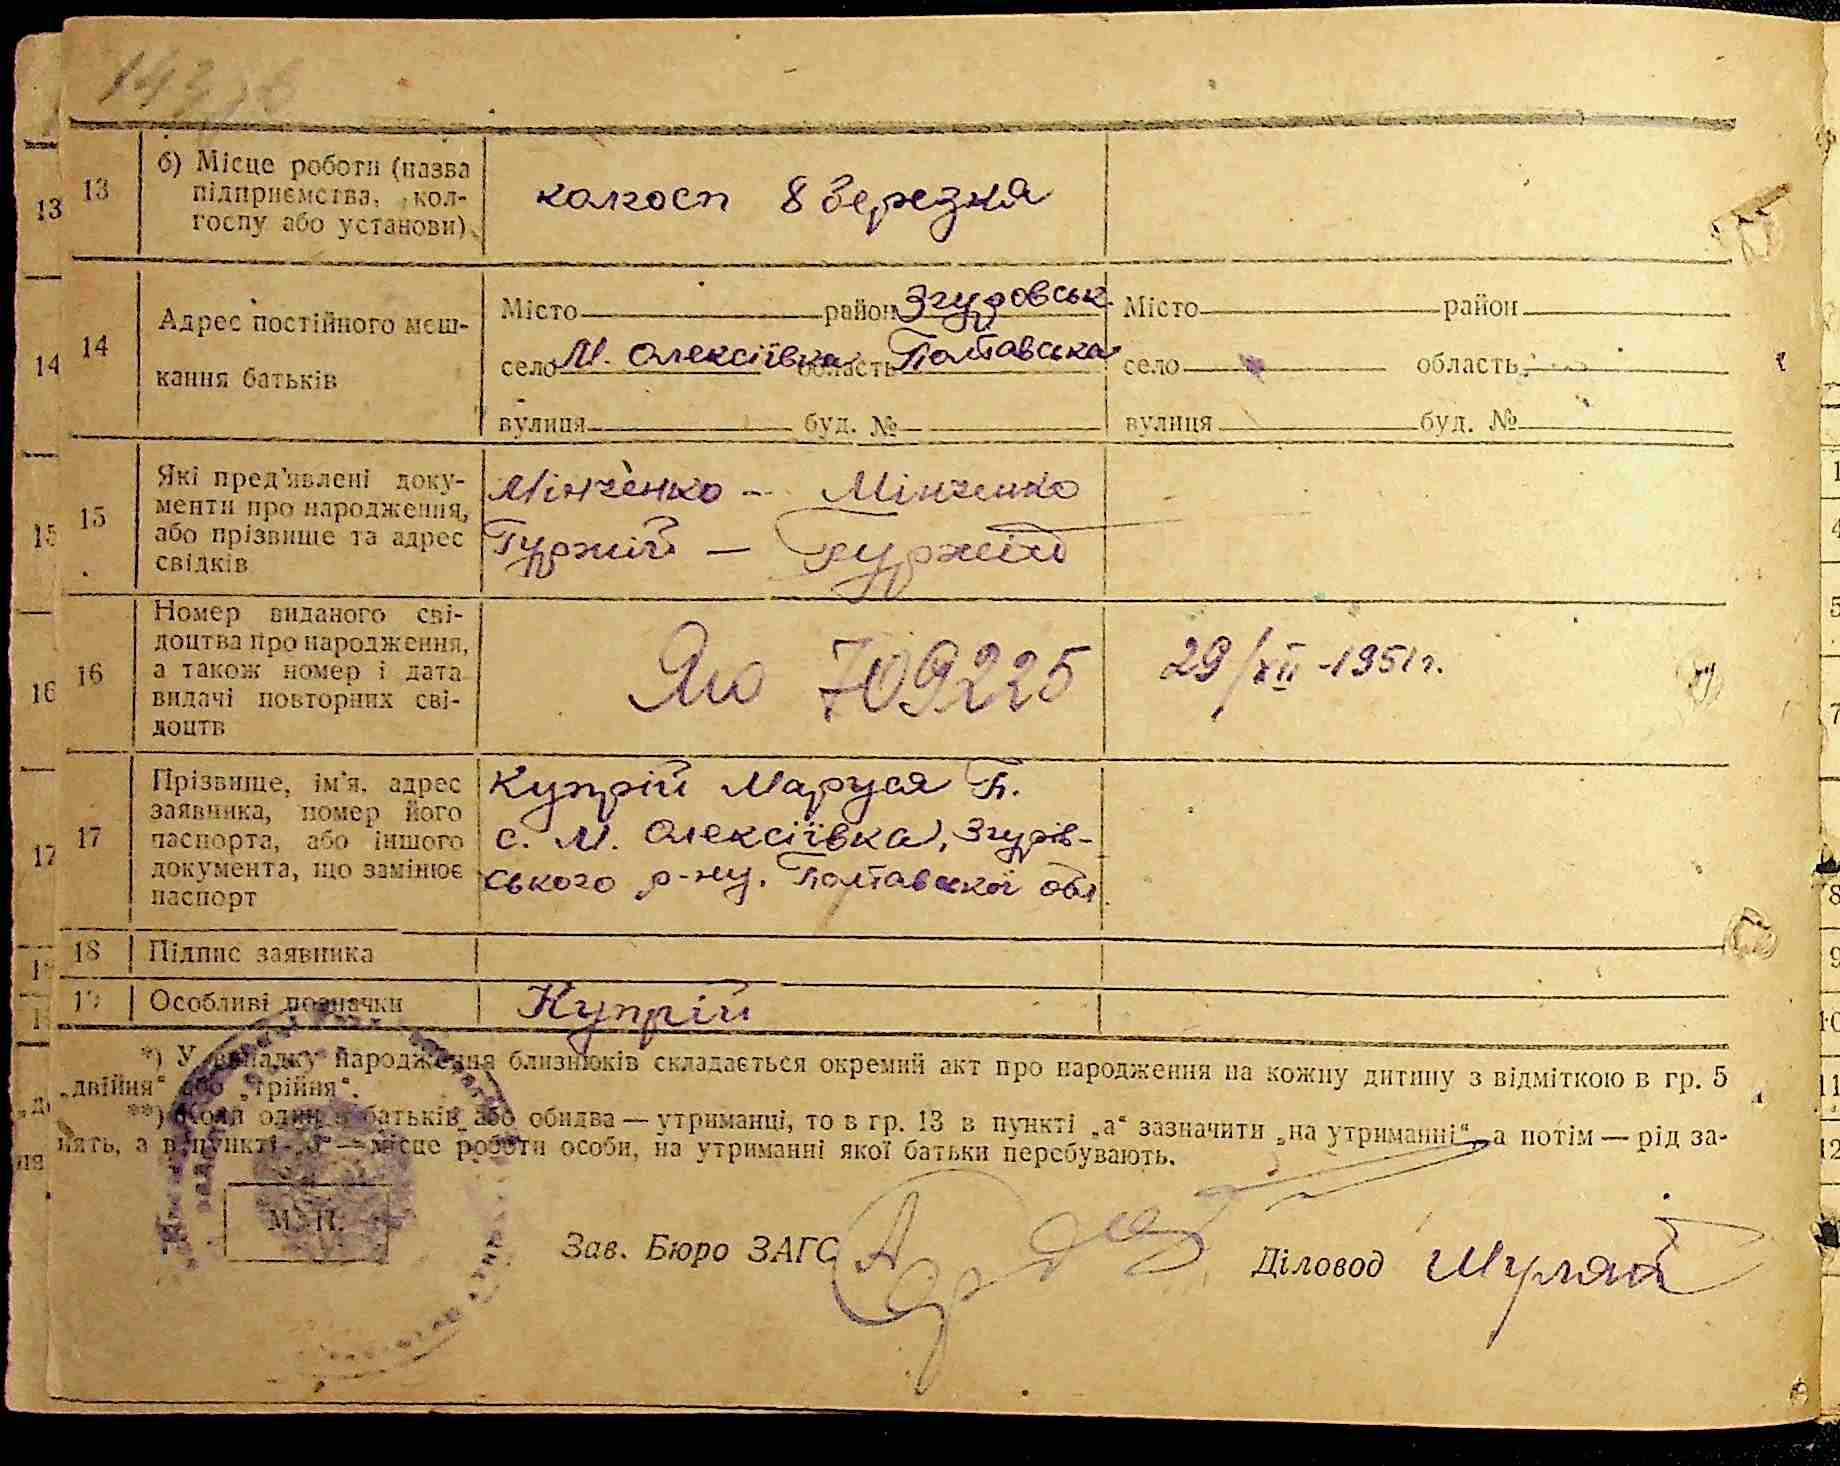 13
б) Місце роботи (назва
підприємства, кол-
госпу або установи)
колгосп 8 березня
14
Адрес постійного меш-
кання батьків
Місто район Згуровськ.
село М. Олексіївка область Полтавська
вулиця буд. №
Місто район
село область
вулиця буд. №
15
Які пред'явлені доку-
менти про народження,
або прізвище та адрес
свідків
Мінченко – Мінченко
Гуржій – Гуржій
16
Номер виданого сві-
доцтва про народження,
а також номер і дата
видачі повторних сві-
доцтв
ЯЮ 709225
29/XII -1951 г.
17
Прізвище, ім'я, адрес
заявника, номер його
паспорта, або іншого
документа, що замінює
паспорт
Купрій Маруся П.
с. М. Олексіївка, Згурів-
ського р-ну, Полтавської обл.
18 Підпис заявника
19 Особливі позначки
Купрій
*) У випадку народження близнюків складається окремий акт про народження на кожну дитину з відміткою в гр. 5
„двійня“ або „трійня“.
**) Коли один з батьків або обидва — утриманці, то в гр. 13 в пункті „а“ зазначити „на утриманні“, а потім — рід за-
нять, а в пункті „б“ — місце роботи особи, на утриманні якої батьки перебувають.
М. П.
Зав. Бюро ЗАГС
Діловод